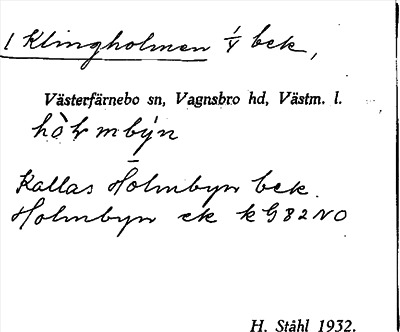 1 Klingholmen 1/4 bek,
Västerfärnebo sn, Vagnsbro hd, Västm. l.
Kallas Holmbyn bek.
Holmbyn ek k G82NO
H. Ståhl 1932.